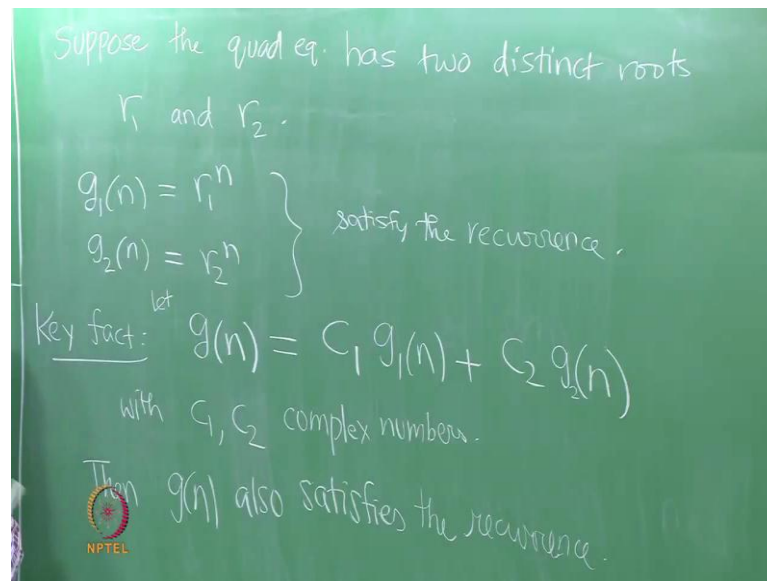 Suppose the quad eq. has two distinct roots
r₁ and r₂.
g₁(n) = r₁ⁿ
g₂(n) = r₂ⁿ
} satisfy the recurrence.
Key fact: let g(n) = C₁ g₁(n) + C₂ g₂(n)
with C₁, C₂ complex numbers.
Then g(n) also satisfies the recurrence.
NPTEL